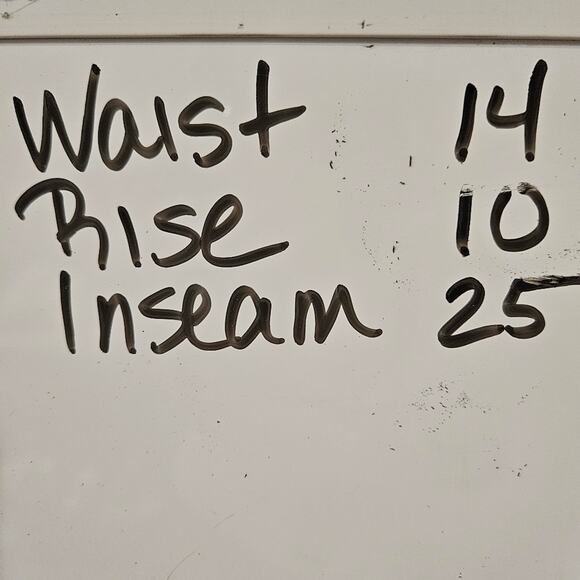 Waist 14
Rise 10
Inseam 25